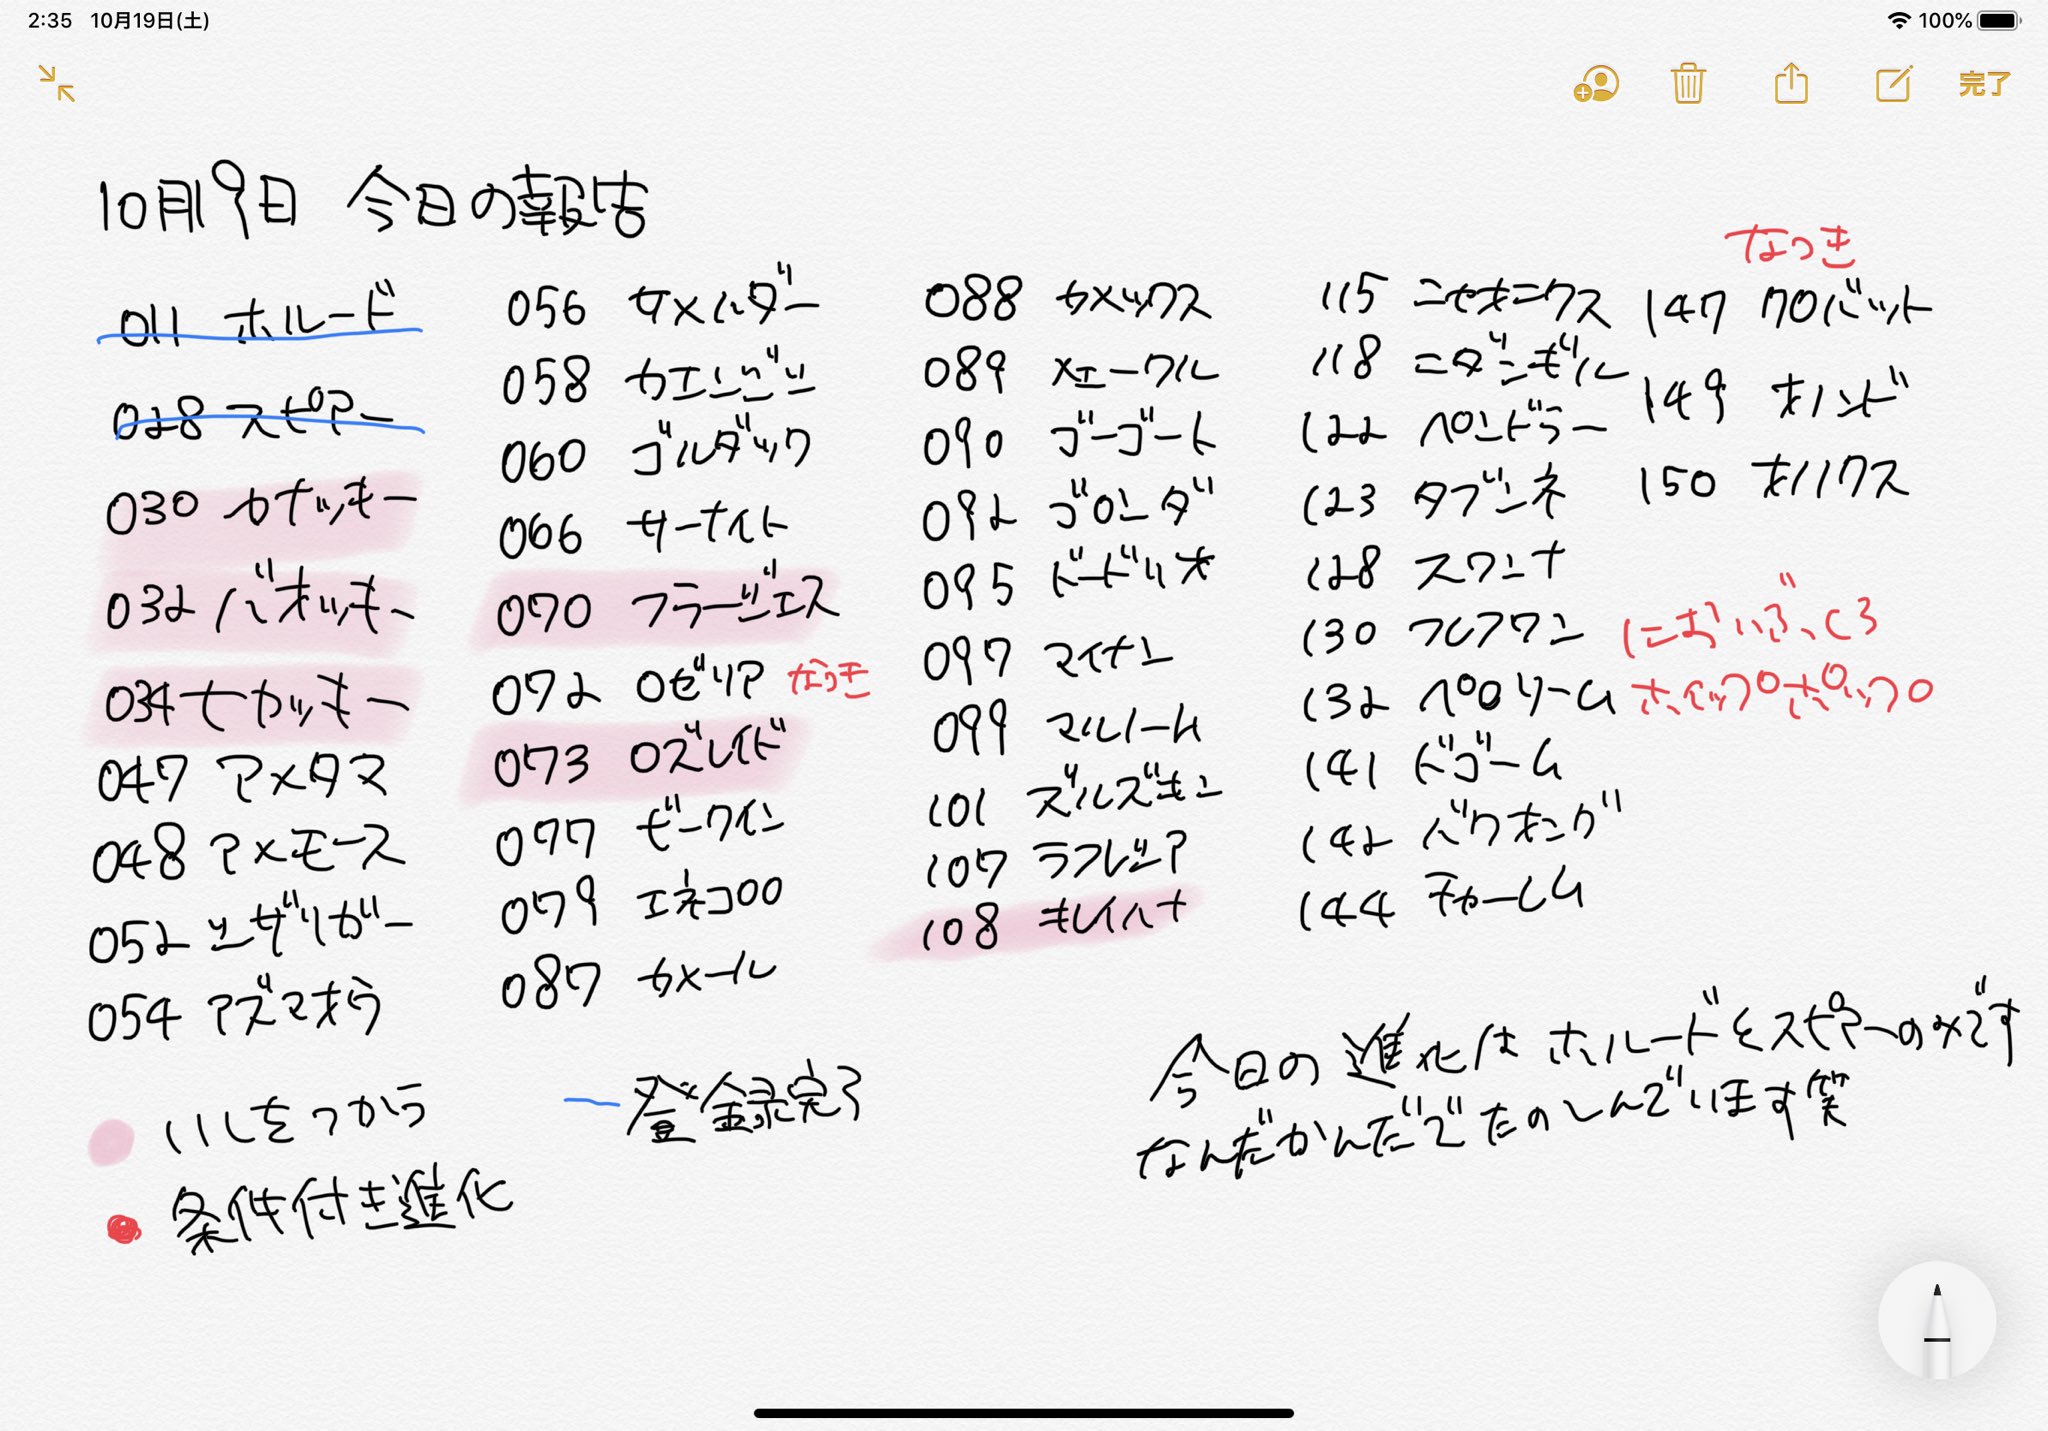 2:35 10月19日(土)
100%
完了
10月19日 今日の報告
011 ホルード
028 スピアー
030 ヤナッキー
032 バオッキー
034 ヒヤッキー
047 アメタマ
048 アメモース
052 シザリガー
054 アズマオウ
056 サメハダー
058 カエンジシ
060 ゴルダック
066 サーナイト
070 フラージェス
072 ロゼリア なつき
073 ロズレイド
077 ビークイン
079 エネコロロ
087 カメール
088 カメックス
089 メェークル
090 ゴーゴート
092 ゴロンダ
095 ドードリオ
097 マイナン
099 マルノーム
101 ズルズキン
107 ラフレシア
108 キレイハナ
115 ニャオニクス
118 ニダンギル
122 ペンドラー
123 タブンネ
128 スワンナ
130 フレフワン においぶくろ
132 ペロリーム ホイップポップ
141 ドゴーム
142 バクオング
144 チャーレム
なつき
147 クロバット
149 オンバ
150 オノノクス
いしをつかう
条件付き進化
登録完了
今日の進化はホルードとスピアーのみです
なんだかんだでたのしんでいます笑